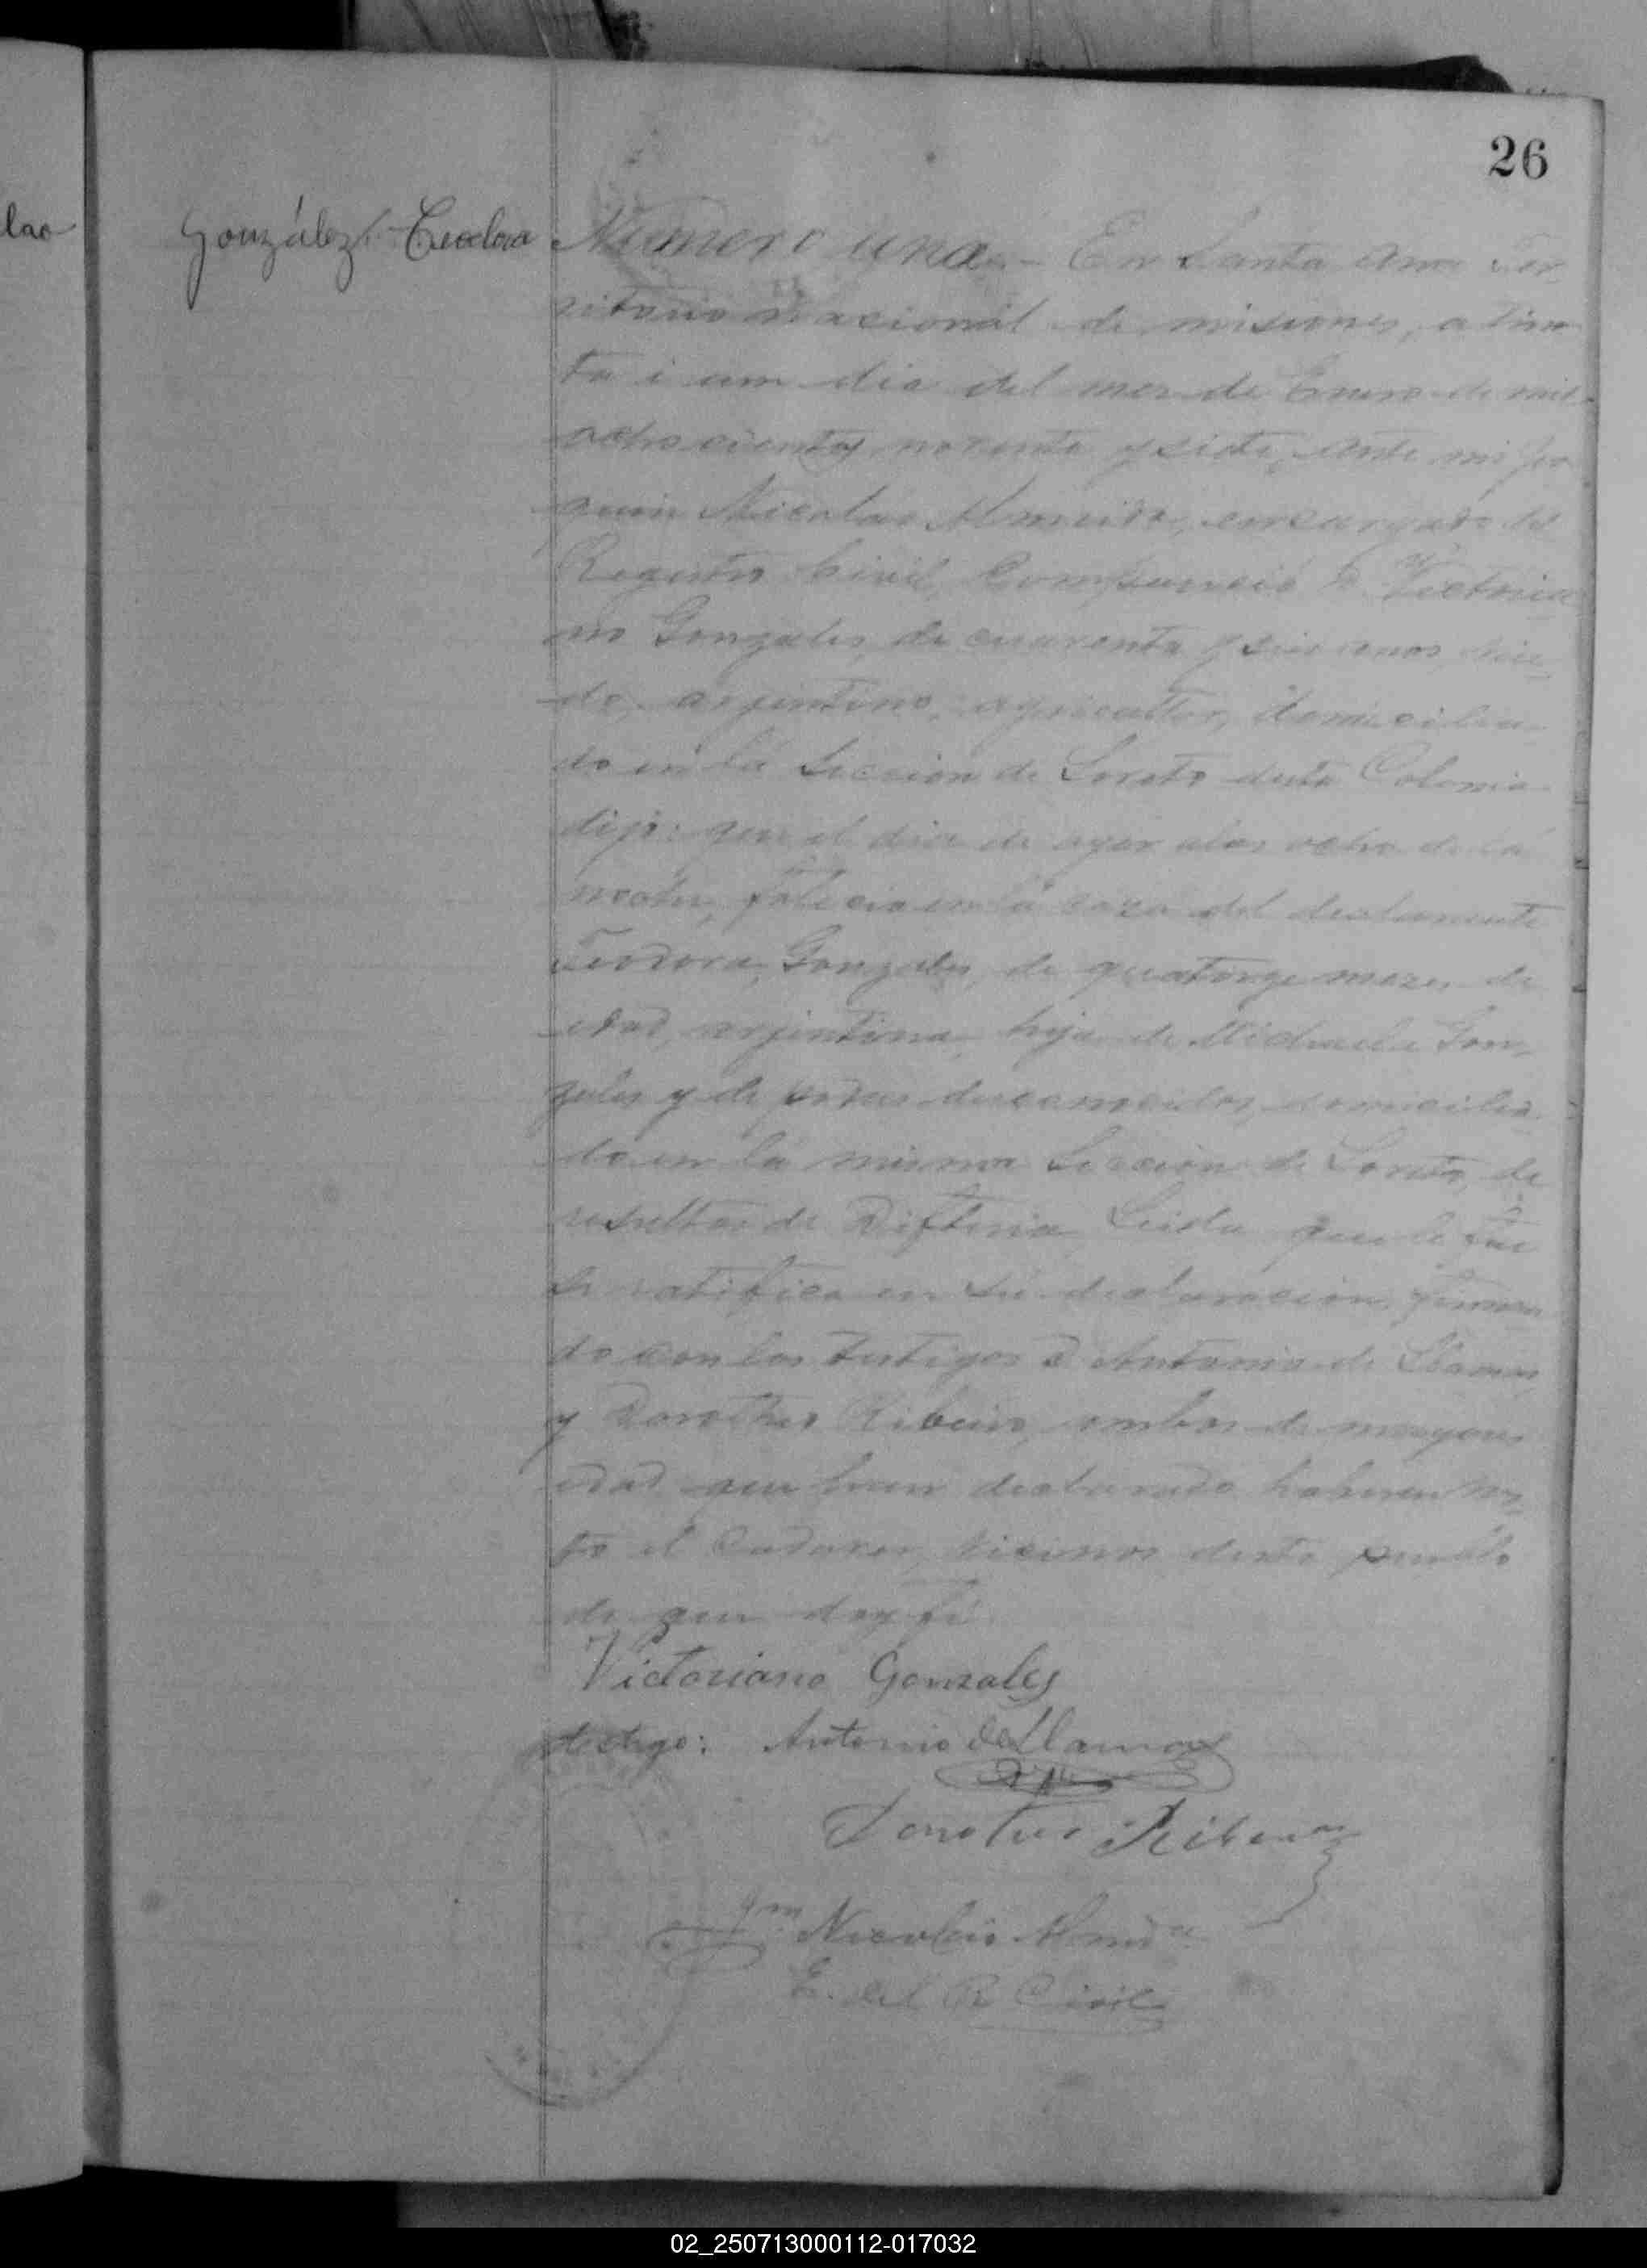 26
lao
González Teodora
Numero una.- En Santa Ana Ter-
ritorio nacional de misiones, a trin
ta i um dia del mes de Enero de mil
ocho cientos noventa y siete, ante mi Joa
quin Nicolas Almeida, encargado del
Registro Civil, Compareció D. Victoria
no Gonzales, de cuarenta y seis anos,
do, arjentino, agricultor, domicilia-
do en la Seccion de Loreto desta Colonia
dijo: que el dia de ayer a las ocho de la
noche, falecio en la casa del declarante
Teodora Gonzales, de quatorze mezes de
edad, arjentina, hija de Michaela Gon-
zales y de padre desconocido, domicilia-
do en la misma Seccion de Loreto, de
resultas de Difteria, Leida que le fue
se ratifica en su declaracion, firman
do con los testigos D. Antonio de Llamas
y Dorotheo Ribeiro, ambos de mayor
edad que han declarado haberen vis-
to el Cadaver, vicinos deste pueblo
de que doy fé
Victoriano Gonzales
testigo: Antonio de Llamas
Dorotheo Ribeiro
Jqm Nicolás Almda
E. del R. Civil
02_250713000112-017032